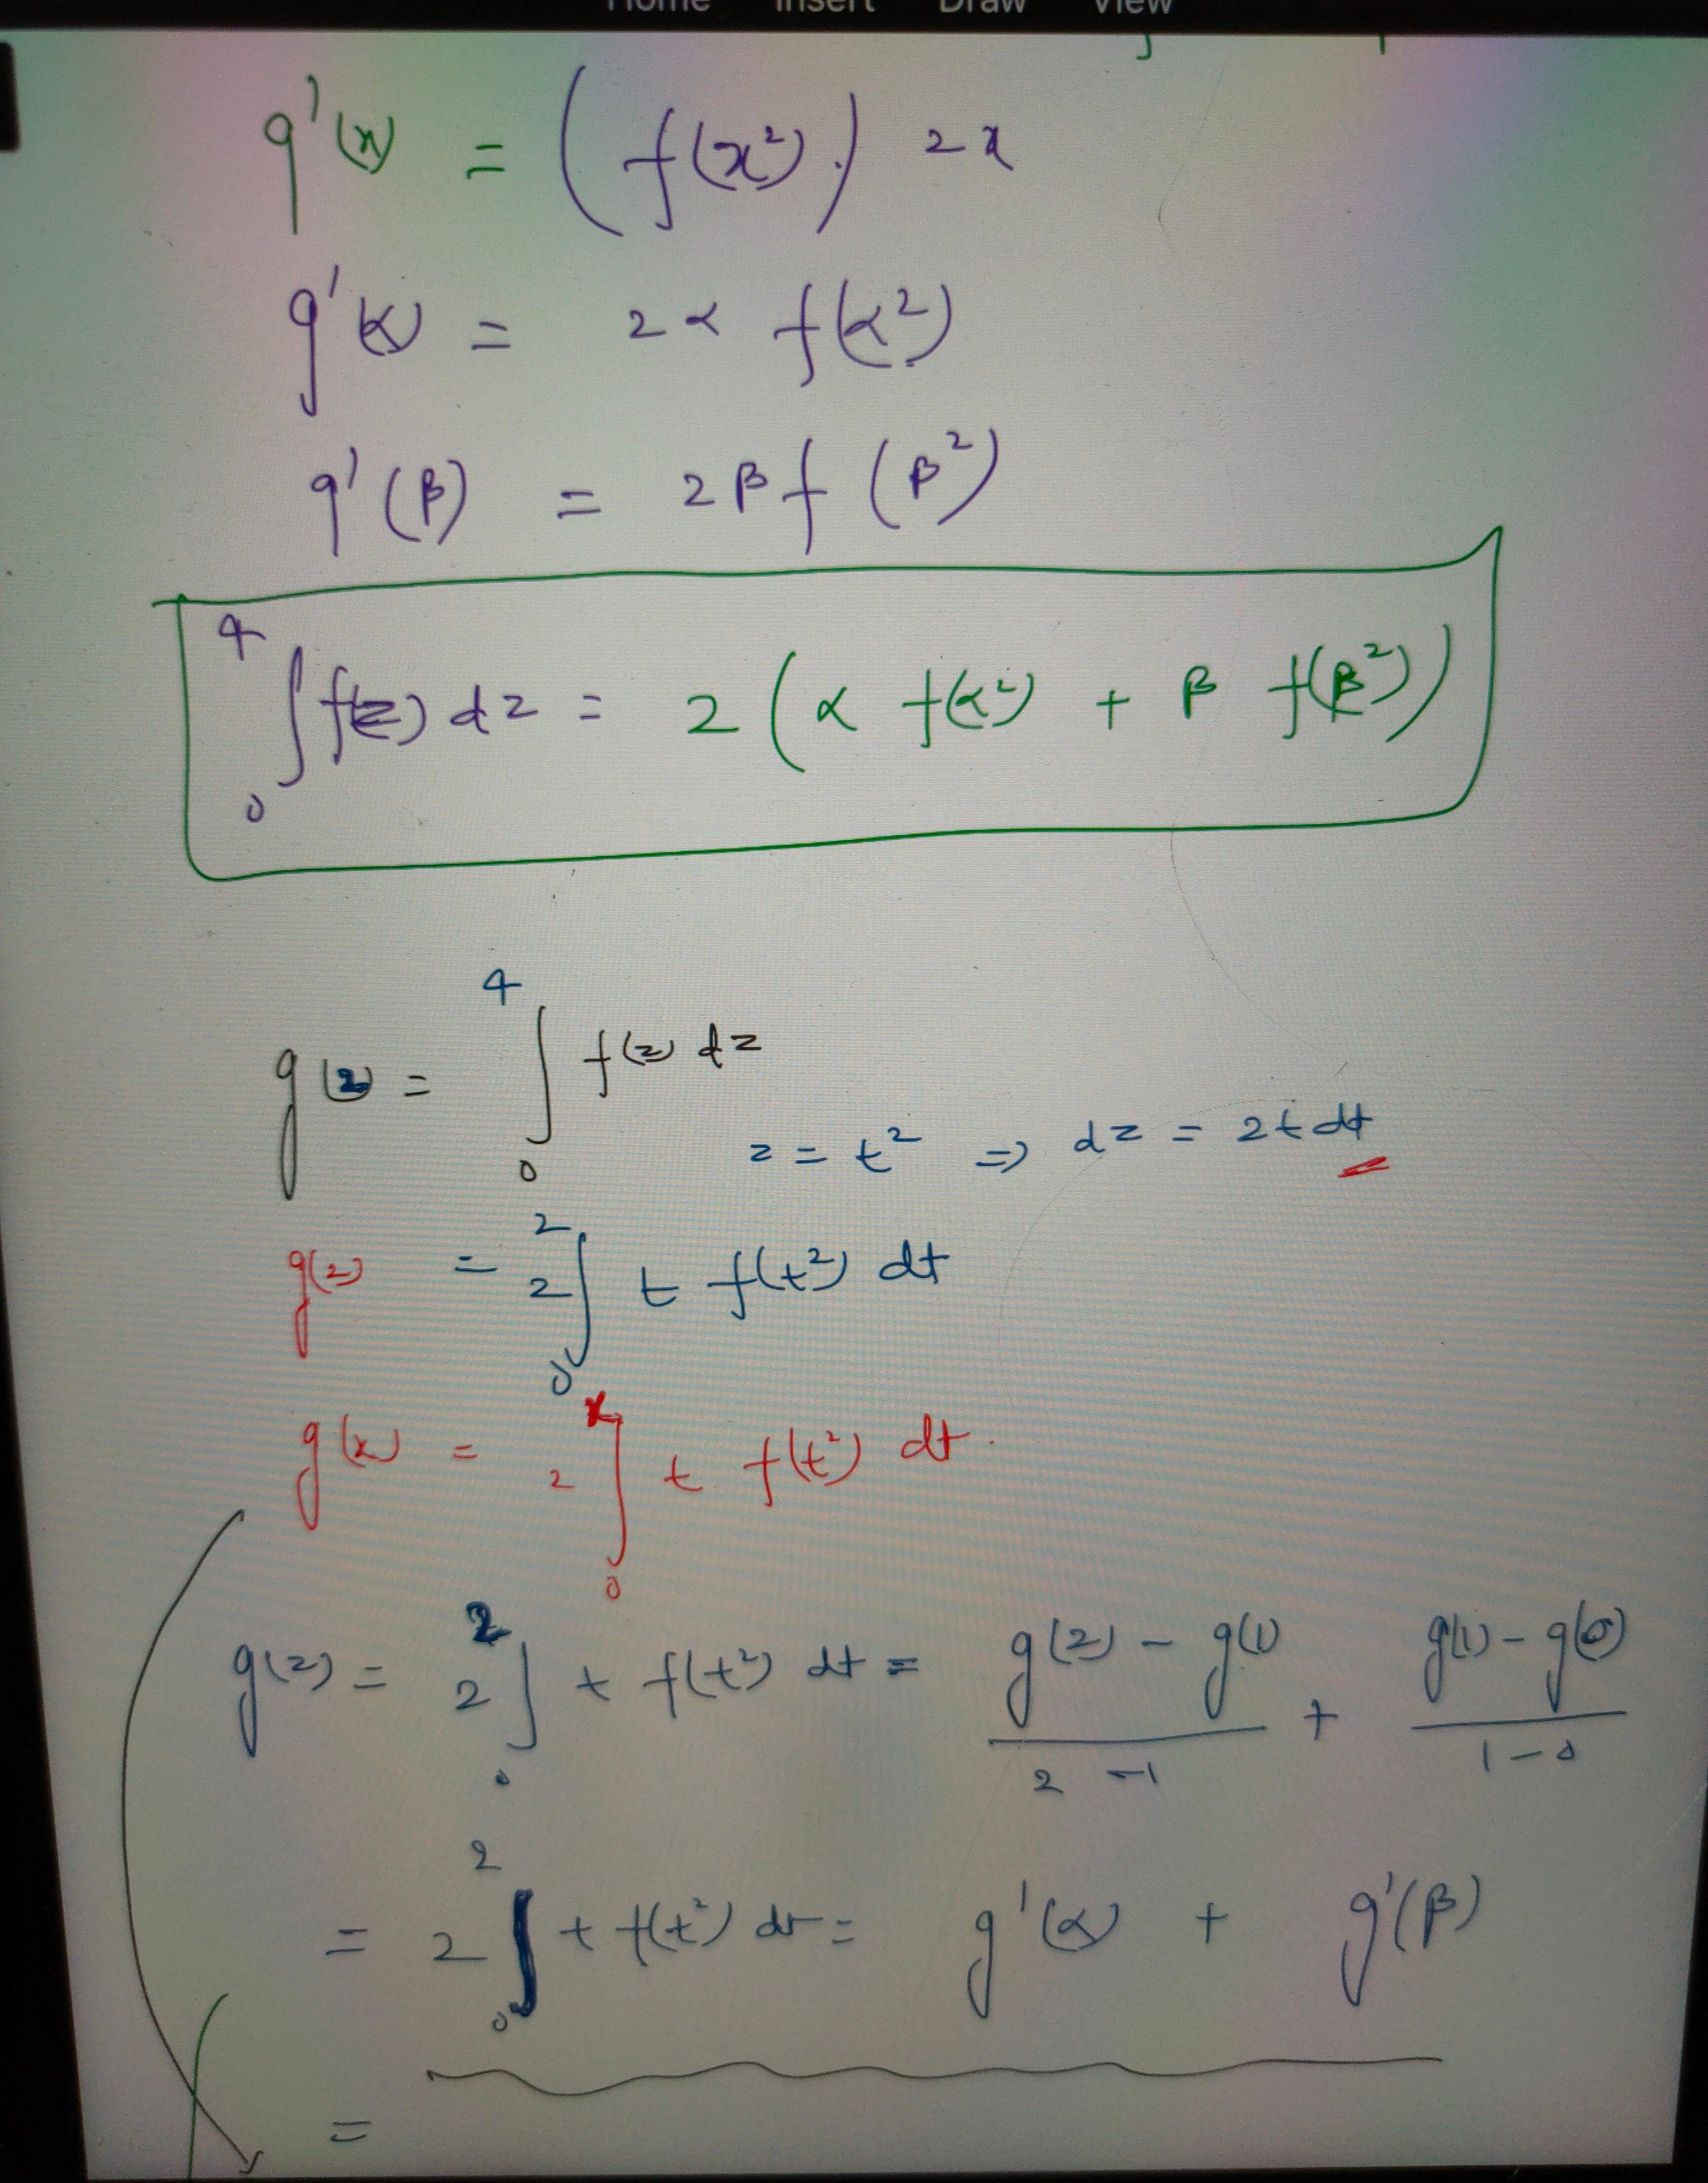 Home Insert Draw View
g'(x) = (f(x²).) 2x
g'(α) = 2α f(α²)
g'(β) = 2β f(β²)
∫₀⁴ f(z) dz = 2(α f(α²) + β f(β²))
g(2) = ∫₀⁴ f(z) dz
z = t² ⇒ dz = 2t dt
g(2) = 2∫₀² t f(t²) dt
g(x) = 2∫₀ˣ t f(t²) dt.
g(2) = 2∫₀² t f(t²) dt = (g(2) - g(1))/(2 - 1) + (g(1) - g(0))/(1 - 0)
= 2∫₀² t f(t²) dt = g'(α) + g'(β)
=